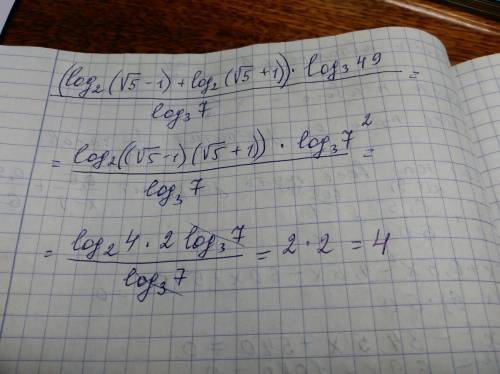 (log₂(√5-1)+log₂(√5+1))·log₃49 =
log₃7
= log₂((√5-1)(√5+1))·log₃7² =
log₃7
= log₂4·2log₃7 = 2·2 = 4
log₃7